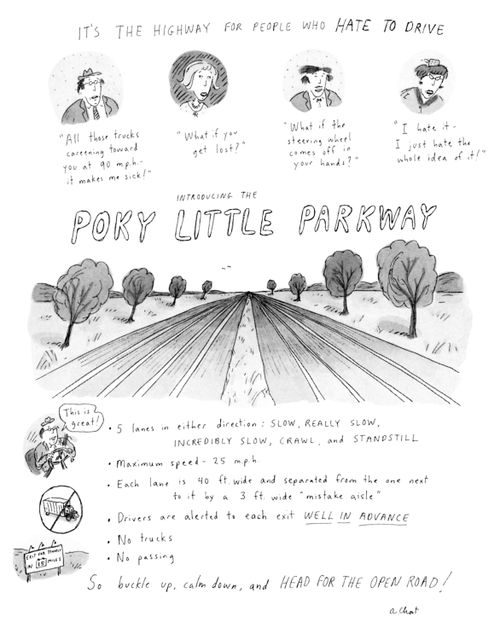 IT'S THE HIGHWAY FOR PEOPLE WHO HATE TO DRIVE
"All those trucks
careening toward
you at 90 m.p.h.-
it makes me sick!"
"What if you
get lost?"
"What if the
steering wheel
comes off in
your hands?"
"I hate it-
I just hate the
whole idea of it!"
INTRODUCING THE
POKY LITTLE PARKWAY
This is
great!
• 5 lanes in either direction: SLOW, REALLY SLOW,
INCREDIBLY SLOW, CRAWL, and STANDSTILL
• Maximum speed - 25 mph
• Each lane is 40 ft wide and separated from the one next
to it by a 3 ft. wide "mistake aisle"
• Drivers are alerted to each exit WELL IN ADVANCE
• No trucks
• No passing
EXIT FOR
IN MILES
So buckle up, calm down, and HEAD FOR THE OPEN ROAD!